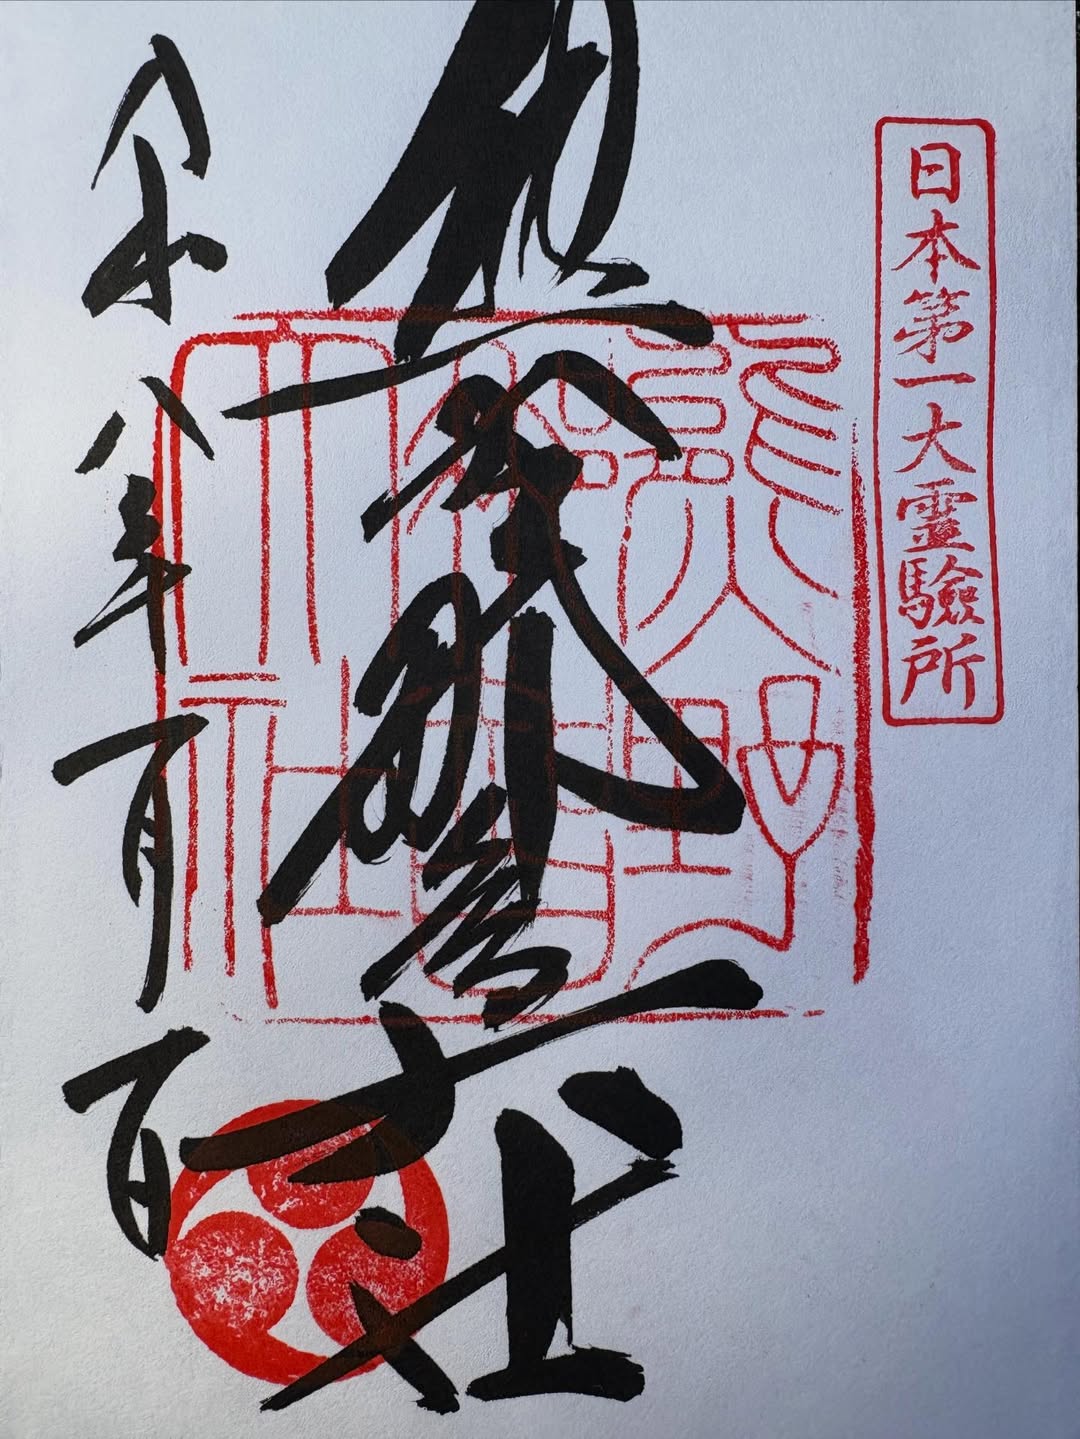 日本第一大霊験所
熊野那智大社
令和八年一月一日
熊野
那智
大社